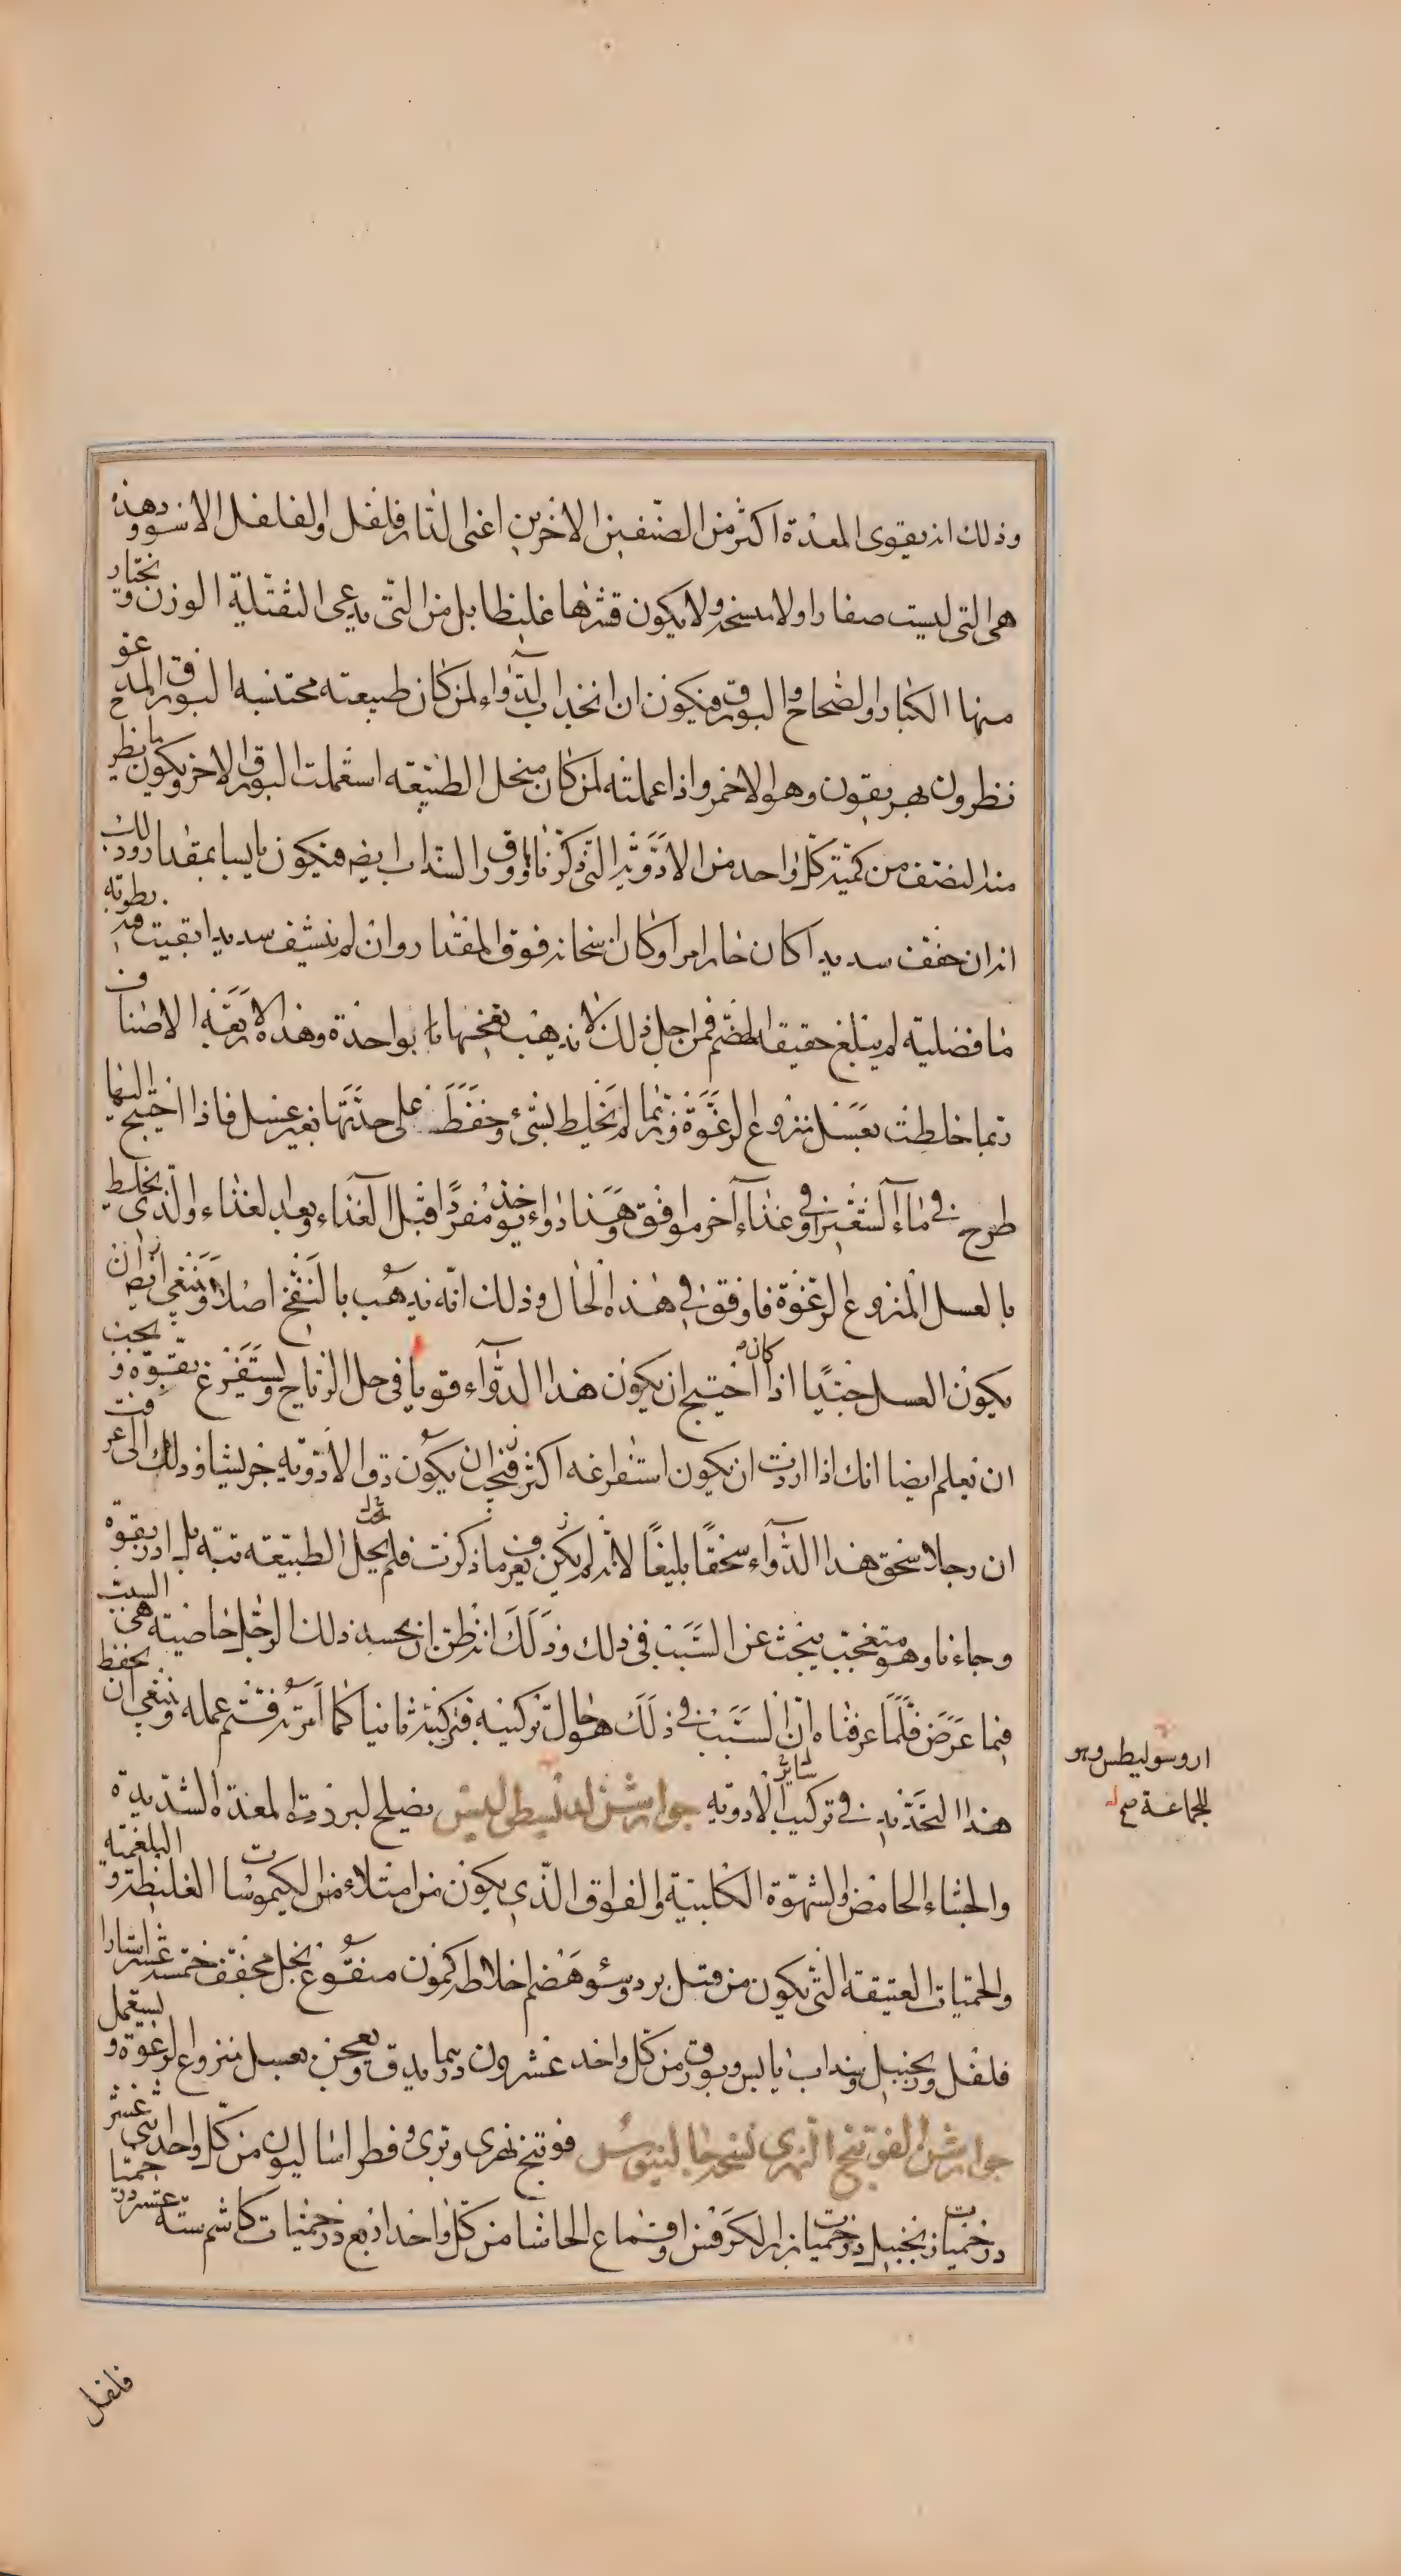 وذلك انه يقوى المعدة اكثر من الصنفين الاخرين اعنى الدار فلفل والفلفل الاسود وهذه
هى التى ليست صغارا ولا متسخه ولا يكون قشرها غليظا بل من التى يدعى الثقيلة الوزن ويختار
منها الكبار والصحاح والبورق فيكون ان اتخذت الدواء لمن كان طبيعته محتبسه البورق المدعو
نظرون بهريقون وهو الاحمر واذا عملته لمن كان منحل الطبيعه استعملت البورق الاخر ويكون يا نظير
منه النصف من كمية كل واحد من الادوية التى ذكرنا وورق السداب ايضه فيكون يابسا بمقدار وذلك
انه ان جفف سديدا كان حارا مرا وكان اسخانه فوق المقدار وان لم ينشف سديدا بقيت فيه رطوبة
ما فضلية لم يبلغ حقيقة الهضم فمن اجل ذلك لا يذهب بنفخها بواحدة وهذه الاربعة الاصناف
ربما خلطت بعسل منزوع الرغوة وربما لم تخلط بشىء وحفظت على حدتها بغير عسل فاذا احتيج اليها
طرح فى ماء الشعير او فى غذاء اخر موافق وهذا دواء يؤخذ مفردا قبل الغذاء وبعد الغذاء والذى يخلط
بالعسل المنزوع الرغوة فاوفق فى هذه الحال وذلك انه يذهب بالنفخ اصلا وينبغى ايضه ان
يكون العسل جيدا اذا كان احتيج ان يكون هذا الدواء قويا فى حل الرياح ويستفرغ بقوة ويجب
ان تعلم ايضا انك اذا اردت ان يكون استفراغه اكثر فيجب ان يكون دق الادوية جريشا وذلك الى عرفت
ان رجلا سحق هذا الدواء سحقا بليغا لانه لم يكن يعرف ما ذكرت فلم يحل الطبيعه بتة بل ادر بقوة
وجاءنا وهو متعجب يبحث عن السبب فى ذلك وذلك انه ظن ان بجسد ذلك الرجل خاصية هى السبب
فيما عرض فلما عرفناه ان السبب فى ذلك هو حال تركيبه فركبه ثانيا كما امرته فتم عمله وينبغى ان يحفظ
هذا التحديد فى تركيب سائر الادوية جوارشن لدنيسطى ليس يصلح لبرد المعدة الشديدة
والجشاء الحامض والشهوة الكلبية والفواق الذى يكون من امتلاء من الكيموسات الغليظة والبلغمية
والحميات العتيقة التى يكون من قبل برد وسوء هضم اخلاطه كمون منقوع بخل مجفف خمسة عشر استارا
فلفل وزنجبيل وسداب يابس وبورق من كل واحد عشرون درهما يدق ويعجن بعسل منزوع الرغوة ويستعمل
جوارشن الفوتنج النهرى نسخه جالينوس فوتنج نهرى وبرى وفطراساليون من كل واحد اثنى عشر
درخميات زنجبيل درخميات بزر الكرفس واقماع الحاشا من كل واحد اربع درخميات كاشم ستة عشر درخميا
اروسوليطس وهو
للجماعة صح
فلفل